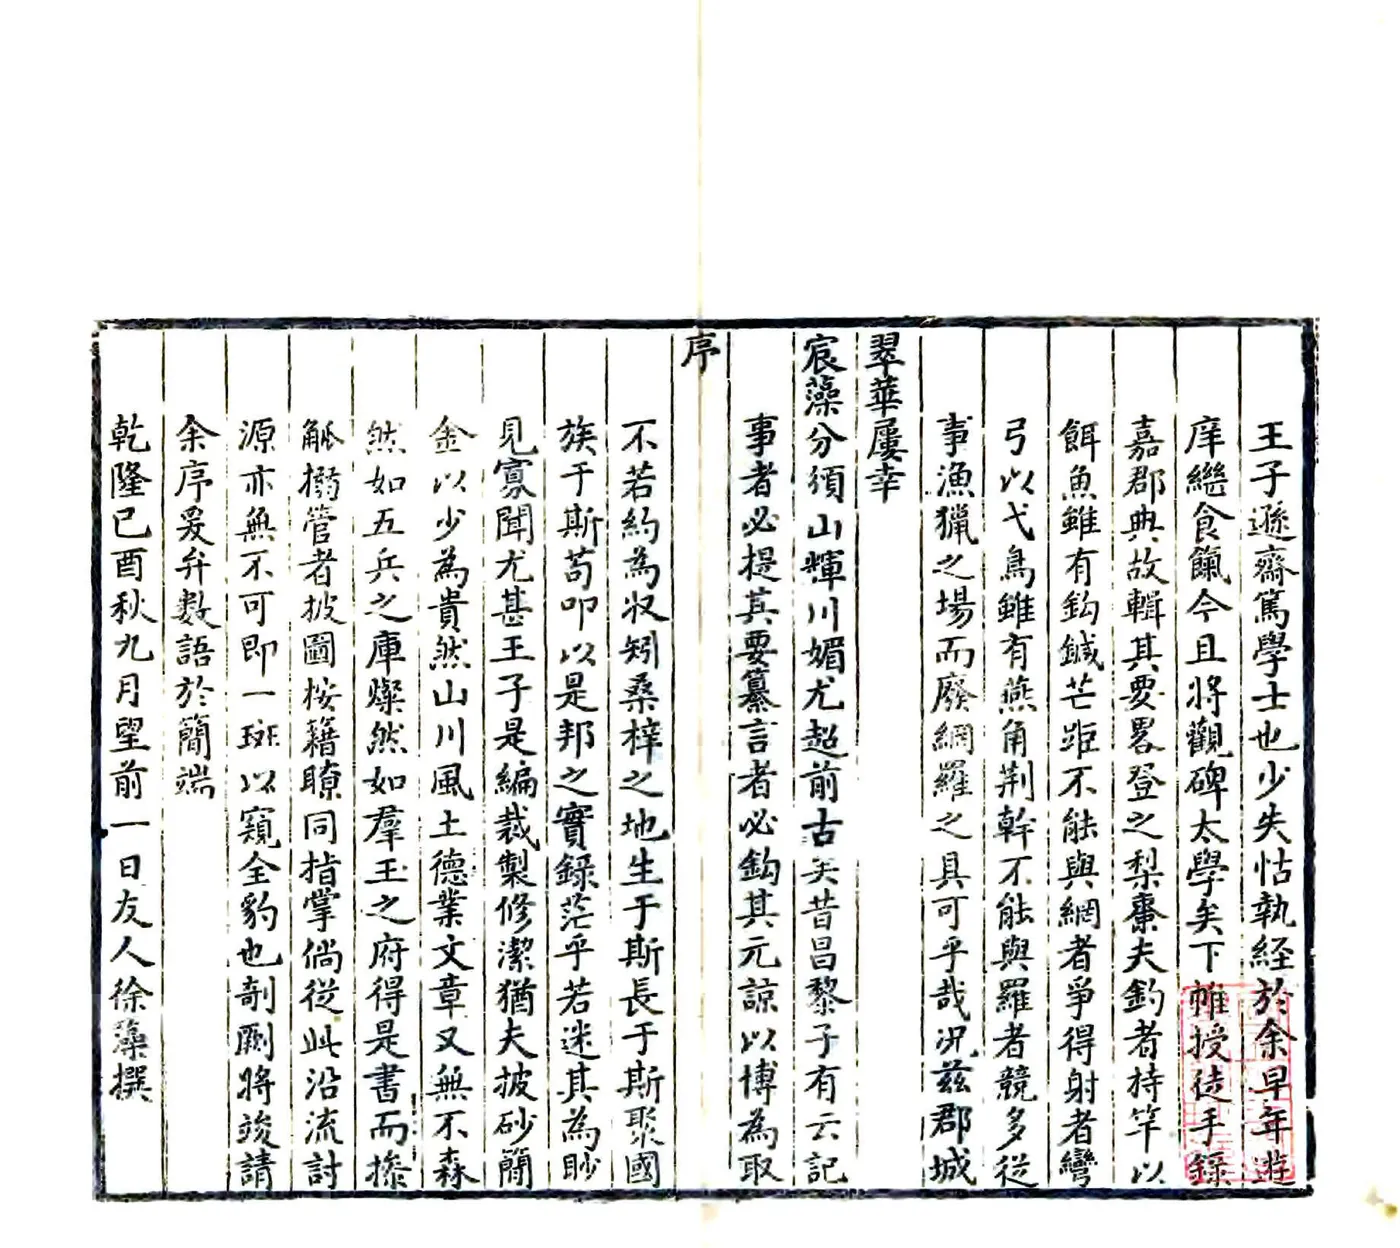 王子遜齋篤學士也少失怙執經於余早年遊
庠繼食餼今且將觀碑太學矣下帷授徒手錄
嘉郡典故輯其要畧登之梨棗夫釣者持竿以
餌魚雖有鈎鍼芒距不能與網者爭得射者彎
弓以弋鳥雖有燕角荆幹不能與羅者競多從
事漁獵之場而廢網羅之具可乎哉况茲郡城
翠華屢幸
宸藻分頒山輝川媚尤超前古矣昔昌黎子有云記
事者必提其要纂言者必鈎其元諒以博為取
序
不若約為收矧桑梓之地生于斯長于斯聚國
族于斯苟叩以是邦之實錄茫乎若迷其為眇
見寡聞尤甚王子是編裁製修潔猶夫披砂簡
金以少為貴然山川風土德業文章又無不森
然如五兵之庫燦然如羣玉之府得是書而摻
觚搦管者披圖桉籍瞭同指掌倘從此沿流討
源亦無不可即一斑以窺全豹也剞劂將竣請
余序爰弁數語於簡端
乾隆己酉秋九月望前一日友人徐藻撰